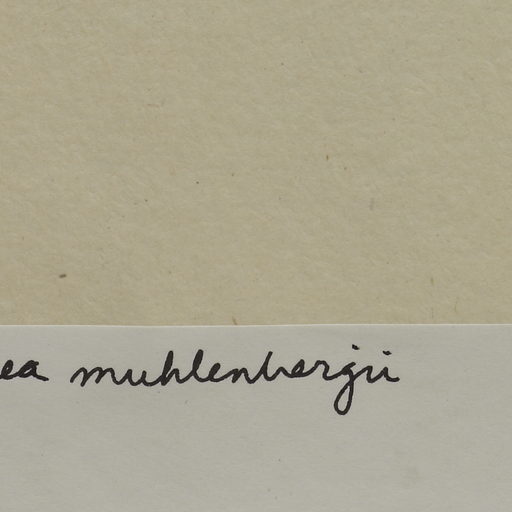 ea muhlenbergii